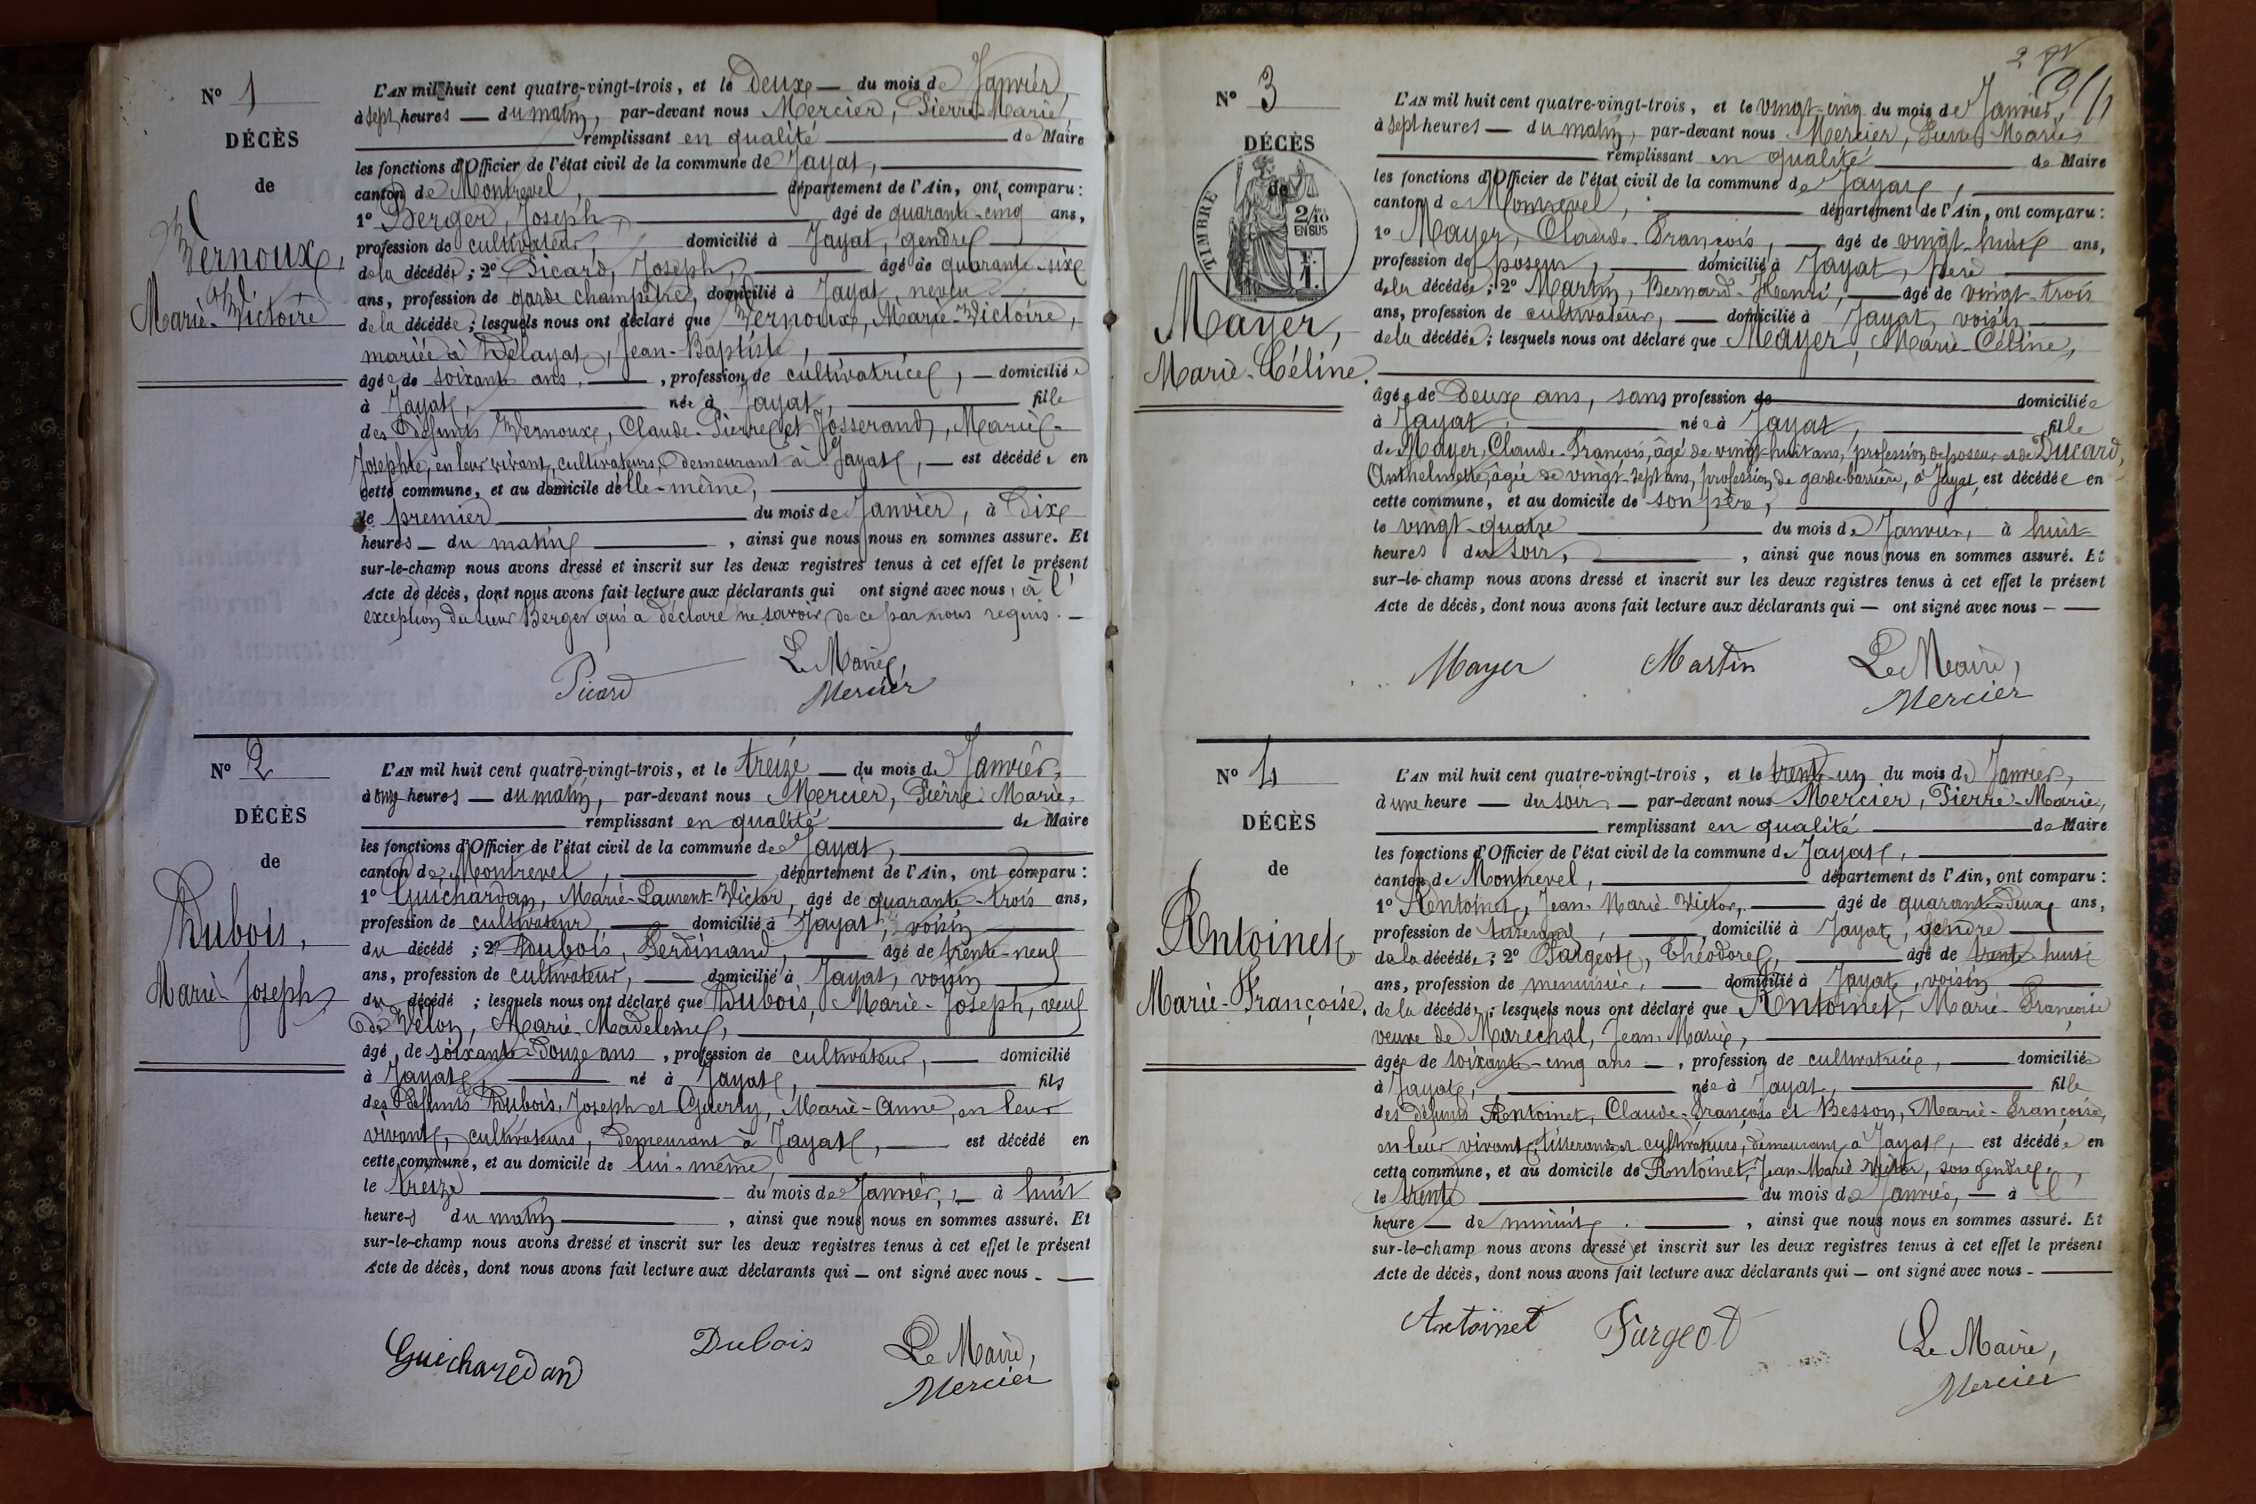 N° 1
DÉCÈS
de
Vernoux,
Marie-Victoire
L'AN mil huit cent quatre-vingt-trois, et le Deux — du mois de Janvier,
à sept heures — du matin, par-devant nous Mercier, Pierre-Marie,
remplissant en qualité de Maire
les fonctions d'Officier de l'état civil de la commune de Jayat,
canton de Montrevel, département de l'Ain, ont comparu :
1° Berger, Joseph, âgé de quarante-cinq ans,
profession de cultivateur, domicilié à Jayat, gendre
de la décédée ; 2° Picard, Joseph, âgé de quarante-six
ans, profession de garde champêtre, domicilié à Jayat, neveu
de la décédée ; lesquels nous ont déclaré que Vernoux, Marie-Victoire,
mariée à Délayat, Jean-Baptiste,
âgée de soixante ans, profession de cultivatrice, — domiciliée
à Jayat, née à Jayat, fille
des défunts Vernoux, Claude-Pierre et Josserand, Marie-
Josephte, en leur vivant, cultivateurs, demeurant à Jayat, — est décédée en
cette commune, et au domicile d'elle-même,
le premier du mois de Janvier, à Dix
heures — du matin, ainsi que nous nous en sommes assuré. Et
sur-le-champ nous avons dressé et inscrit sur les deux registres tenus à cet effet le présent
Acte de décès, dont nous avons fait lecture aux déclarants qui ont signé avec nous, à l'
exception du sieur Berger qui a déclaré ne savoir, de ce par nous requis. —
Picard
Le Maire,
Mercier
N° 2
DÉCÈS
de
Dubois,
Marie-Joseph,
L'AN mil huit cent quatre-vingt-trois, et le treize — du mois de Janvier,
à onze heures — du matin, par-devant nous Mercier, Pierre Marie,
remplissant en qualité de Maire
les fonctions d'Officier de l'état civil de la commune de Jayat,
canton de Montrevel, département de l'Ain, ont comparu :
1° Guichardan, Marie-Laurent-Victor, âgé de quarante-trois ans,
profession de cultivateur, domicilié à Jayat, voisin
du décédé ; 2° Dubois, Ferdinand, âgé de trente-neuf
ans, profession de cultivateur, — domicilié à Jayat, voisin
du décédé ; lesquels nous ont déclaré que Dubois, Marie-Joseph, veuf
de Velon, Marie-Madeleine,
âgé de soixante-douze ans, profession de cultivateur, — domicilié
à Jayat, né à Jayat, fils
des défunts Dubois, Joseph et Guerry, Marie-Anne, en leur
vivant, cultivateurs, demeurant à Jayat, — est décédé en
cette commune, et au domicile de lui-même,
le treize du mois de Janvier, — à huit
heures du matin, ainsi que nous nous en sommes assuré. Et
sur-le-champ nous avons dressé et inscrit sur les deux registres tenus à cet effet le présent
Acte de décès, dont nous avons fait lecture aux déclarants qui — ont signé avec nous. —
Guicharedan
Dubois
Le Maire,
Mercier
N° 3
DÉCÈS
de
TIMBRE
2/10
EN SUS
F.
1.
Mayer,
Marie-Céline.
L'AN mil huit cent quatre-vingt-trois, et le vingt-cinq du mois de Janvier,
à sept heures — du matin, par-devant nous Mercier, Pierre Marie
remplissant en qualité de Maire
les fonctions d'Officier de l'état civil de la commune de Jayat,
canton de Montrevel, département de l'Ain, ont comparu :
1° Mayer, Claude-François, — âgé de vingt-huit ans,
profession de poseur, domicilié à Jayat, père
de la décédée ; 2° Martin, Bernard-Henri, — âgé de vingt-trois
ans, profession de cultivateur, — domicilié à Jayat, voisin
de la décédée ; lesquels nous ont déclaré que Mayer, Marie-Céline,
âgée de Deux ans, sans profession de domiciliée
à Jayat, née à Jayat, fille
de Mayer, Claude-François, âgé de vingt-huit ans, profession de poseur et de Ducard,
Anthelmette, âgée de vingt-sept ans, profession de garde-barrière, à Jayat, est décédée en
cette commune, et au domicile de son père,
le vingt-quatre du mois de Janvier, à huit
heures du soir, ainsi que nous nous en sommes assuré. Et
sur-le-champ nous avons dressé et inscrit sur les deux registres tenus à cet effet le présent
Acte de décès, dont nous avons fait lecture aux déclarants qui — ont signé avec nous — —
Mayer
Martin
Le Maire,
Mercier
N° 4
DÉCÈS
de
Antoinet,
Marie-Françoise.
L'AN mil huit cent quatre-vingt-trois, et le trente-un du mois de Janvier,
à une heure — du soir — par-devant nous Mercier, Pierre-Marie,
remplissant en qualité de Maire
les fonctions d'Officier de l'état civil de la commune de Jayat,
canton de Montrevel, département de l'Ain, ont comparu :
1° Antoinet, Jean-Marie-Victor, âgé de quarante-Deux ans,
profession de tisserand, domicilié à Jayat, gendre
de la décédée ; 2° Fargeot, Théodore, âgé de trente-huit
ans, profession de menuisier, — domicilié à Jayat, voisin
de la décédée ; lesquels nous ont déclaré que Antoinet, Marie-Françoise
veuve de Maréchal, Jean-Marie,
âgée de soixante-cinq ans — , profession de cultivatrice, domiciliée
à Jayat, née à Jayat, fille
des défunts Antoinet, Claude-François et Besson, Marie-Françoise,
en leur vivant, tisserand et cultivateurs, demeurant à Jayat, est décédée en
cette commune, et au domicile de Antoinet, Jean Marie Victor, son gendre,
le trente du mois de Janvier, — à l'
heure — de minuit, ainsi que nous nous en sommes assuré. Et
sur-le-champ nous avons dressé et inscrit sur les deux registres tenus à cet effet le présent
Acte de décès, dont nous avons fait lecture aux déclarants qui — ont signé avec nous. —
Antoinet
Fargeot
Le Maire,
Mercier